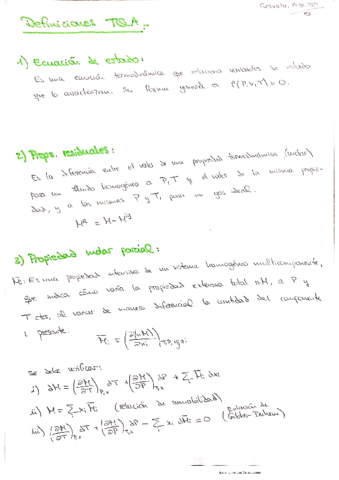 Definiciones TQA
1) Ecuación de estado:
Es una ecuación termodinámica que relaciona variables de estado
que lo caracterizan. Su forma general es f(P,v,T) = 0.
2) Props. residuales:
Es la diferencia entre el valor de una propiedad termodinámica (molar)
para un fluido homogéneo a P,T y el valor de la misma propie-
dad, y a las mismas P y T, para un gas ideal.
M^R = M - M^gi
3) Propiedad molar parcial:
M̄i: Es una propiedad intensiva de un sistema homogéneo multicomponente,
que indica cómo varía la propiedad extensiva total nM, a P y
T ctes, al variar de manera diferencial la cantidad del componente
i presente.
M̄i = (∂(nM)/∂ni)
Se debe verificar:
i) dM = (∂M/∂T) dT + (∂M/∂P) dP + Σ M̄i dxi
ii) M = Σ xi M̄i (relación de sumabilidad)
iii) (∂M/∂T) dT + (∂M/∂P) dP - Σ xi dM̄i = 0 (Ecuación de
Gibbs-Duhem)